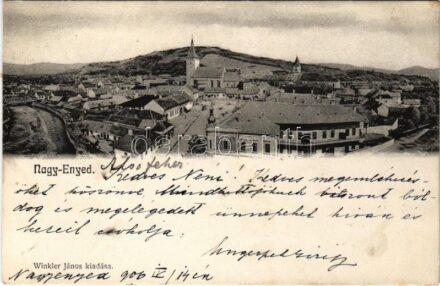 Nagy-Enyed. Alsófehér
Kedves Néni! Kedves megemlékezés-
öket köszönve, Mindkettőjöknek bátront bol-
dog is megelégedett ünnepeket kiván és
kezeit csókolja:
Winkler János kiadása.
Nagyenyed 906 IV/14én